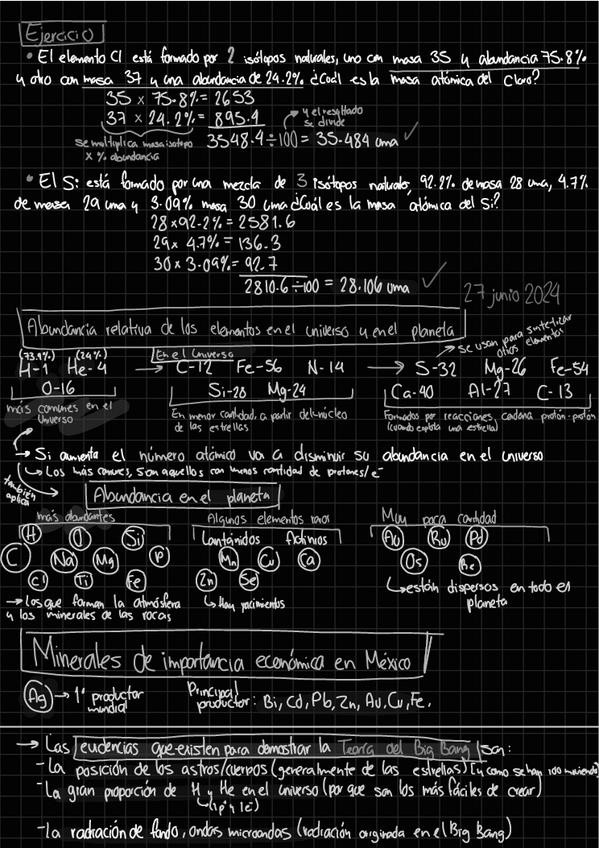 Ejercicio
• El elemento Cl está formado por 2 isótopos naturales, uno con masa 35 y abundancia 75.8%
y otro con masa 37 y una abundancia de 24.2% ¿Cuál es la masa atómica del Cloro?
35 x 75.8% = 2653
37 x 24.2% = 895.4
y el resultado se divide
se multiplica masa isotopo x % abundancia
3548.4 ÷ 100 = 35.484 uma ✓
• El Si está formado por una mezcla de 3 isótopos naturales, 92.2% de masa 28 uma, 4.7%
de masa 29 uma y 3.09% masa 30 uma ¿Cuál es la masa atómica del Si?
28 x 92.2% = 2581.6
29 x 4.7% = 136.3
30 x 3.09% = 92.7
2810.6 ÷ 100 = 28.106 uma ✓
27 junio 2024
Abundancia relativa de los elementos en el universo y en el planeta
se usan para sintetizar otros elementos
(73.9%) (24%) En el Universo
H-1 He-4 → C-12 Fe-56 N-14 → S-32 Mg-26 Fe-54
O-16 Si-28 Mg-24 Ca-40 Al-27 C-13
más comunes en el Universo
En menor cantidad, a partir del núcleo de las estrellas
Formados por reacciones, cadena protón-protón (cuando explota una estrella)
→ Si aumenta el número atómico va a disminuir su abundancia en el universo
↳ Los más comunes, son aquellos con menos cantidad de protones/e⁻
también aplica
Abundancia en el planeta
más abundantes Algunos elementos raros Muy poca cantidad
H O Si Lantánidos Actinios Au Ru Pd
C Na Mg P Mn Cu Ca Os Re
Cl Ti Fe Zn Se
→ Los que forman la atmósfera y los minerales de las rocas
↳ Hay yacimientos
↳ están dispersos en todo el planeta
Minerales de importancia económica en México
Ag → 1° productor mundial
Principal productor: Bi, Cd, Pb, Zn, Au, Cu, Fe.
→ Las evidencias que existen para demostrar la Teoría del Big Bang son:
-La posición de los astros/cuerpos (generalmente de las estrellas) (y como se han ido moviendo)
-La gran proporción de H y He en el universo (por que son los más fáciles de crear)
↳ (1p⁺ y 1e⁻)
-La radiación de fondo, ondas microondas (radiación originada en el Big Bang)